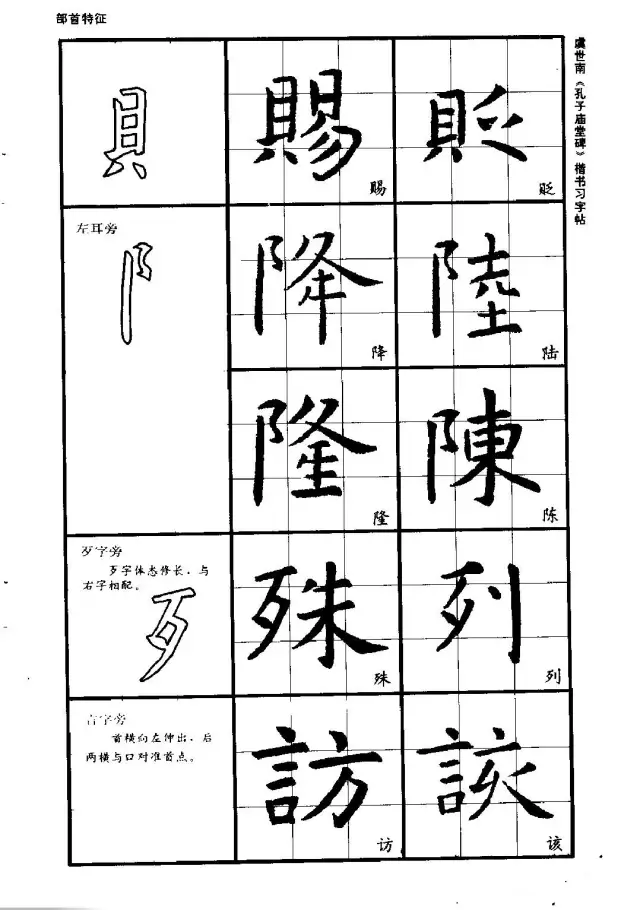 部首特征
虞世南《孔子庙堂碑》楷书习字帖
貝
賜
赐
貶
贬
左耳旁
阝
降
降
陸
陆
隆
隆
陳
陈
歹字旁
歹字体态修长，与
右字相配。
歹
殊
殊
列
列
言字旁
首横向左伸出，后
两横与口对准首点。
訪
访
該
该